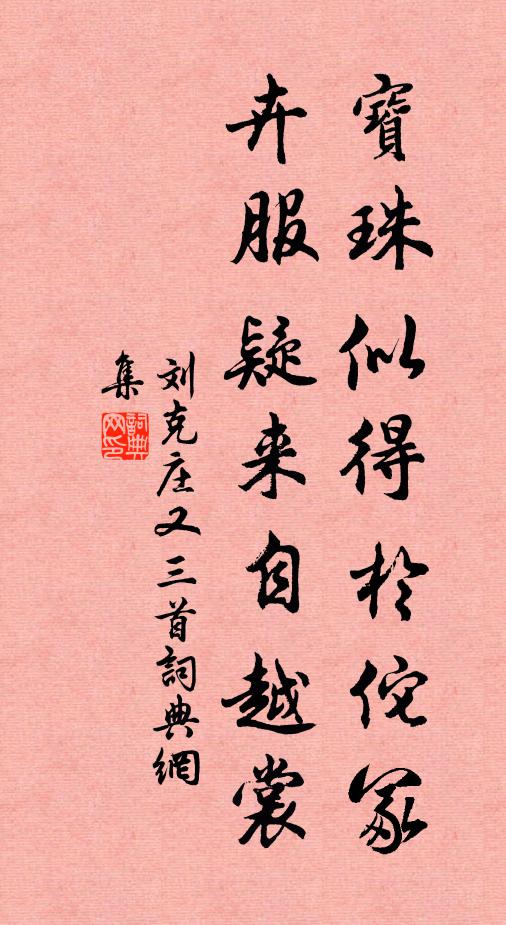 寶珠似得於佗冢
卉服疑来自越裳
刘克庄又三首詞典網
集
詞典网印